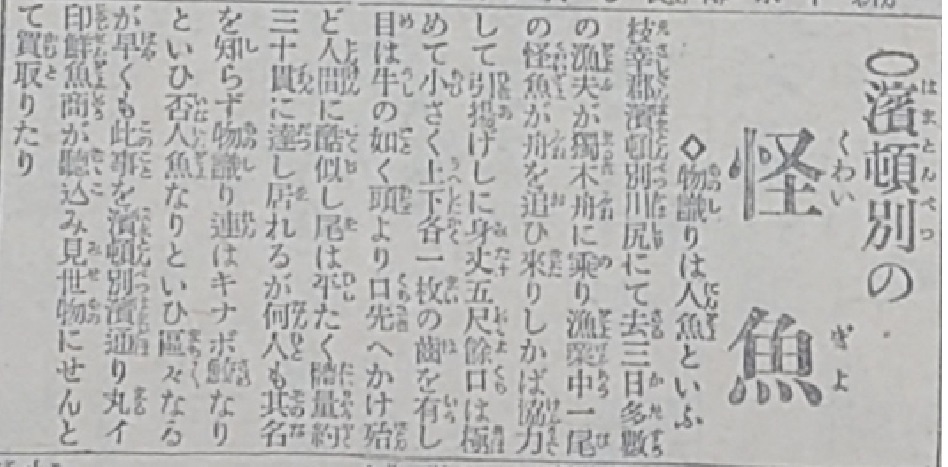 ○濱頓別の
怪魚
◇物識りは人魚といふ
枝幸郡濱頓別川尻にて去三日多數
の漁夫が獨木舟に乘り漁業中一尾
の怪魚が舟を追ひ來りしかば協力
して引揚げしに身丈五尺餘口は極
めて小さく上下各一枚の齒を有し
目は牛の如く頭より口先へかけ殆
ど人間に酷似し尾は平たく體量約
三十貫に達し居れるが何人も其名
を知らず物識り連はキナボ鮫なり
といひ否人魚なりといひ區々なる
が早くも此事を濱頓別濱通り丸イ
印鮮魚商が聽込み見世物にせんと
て買取りたり